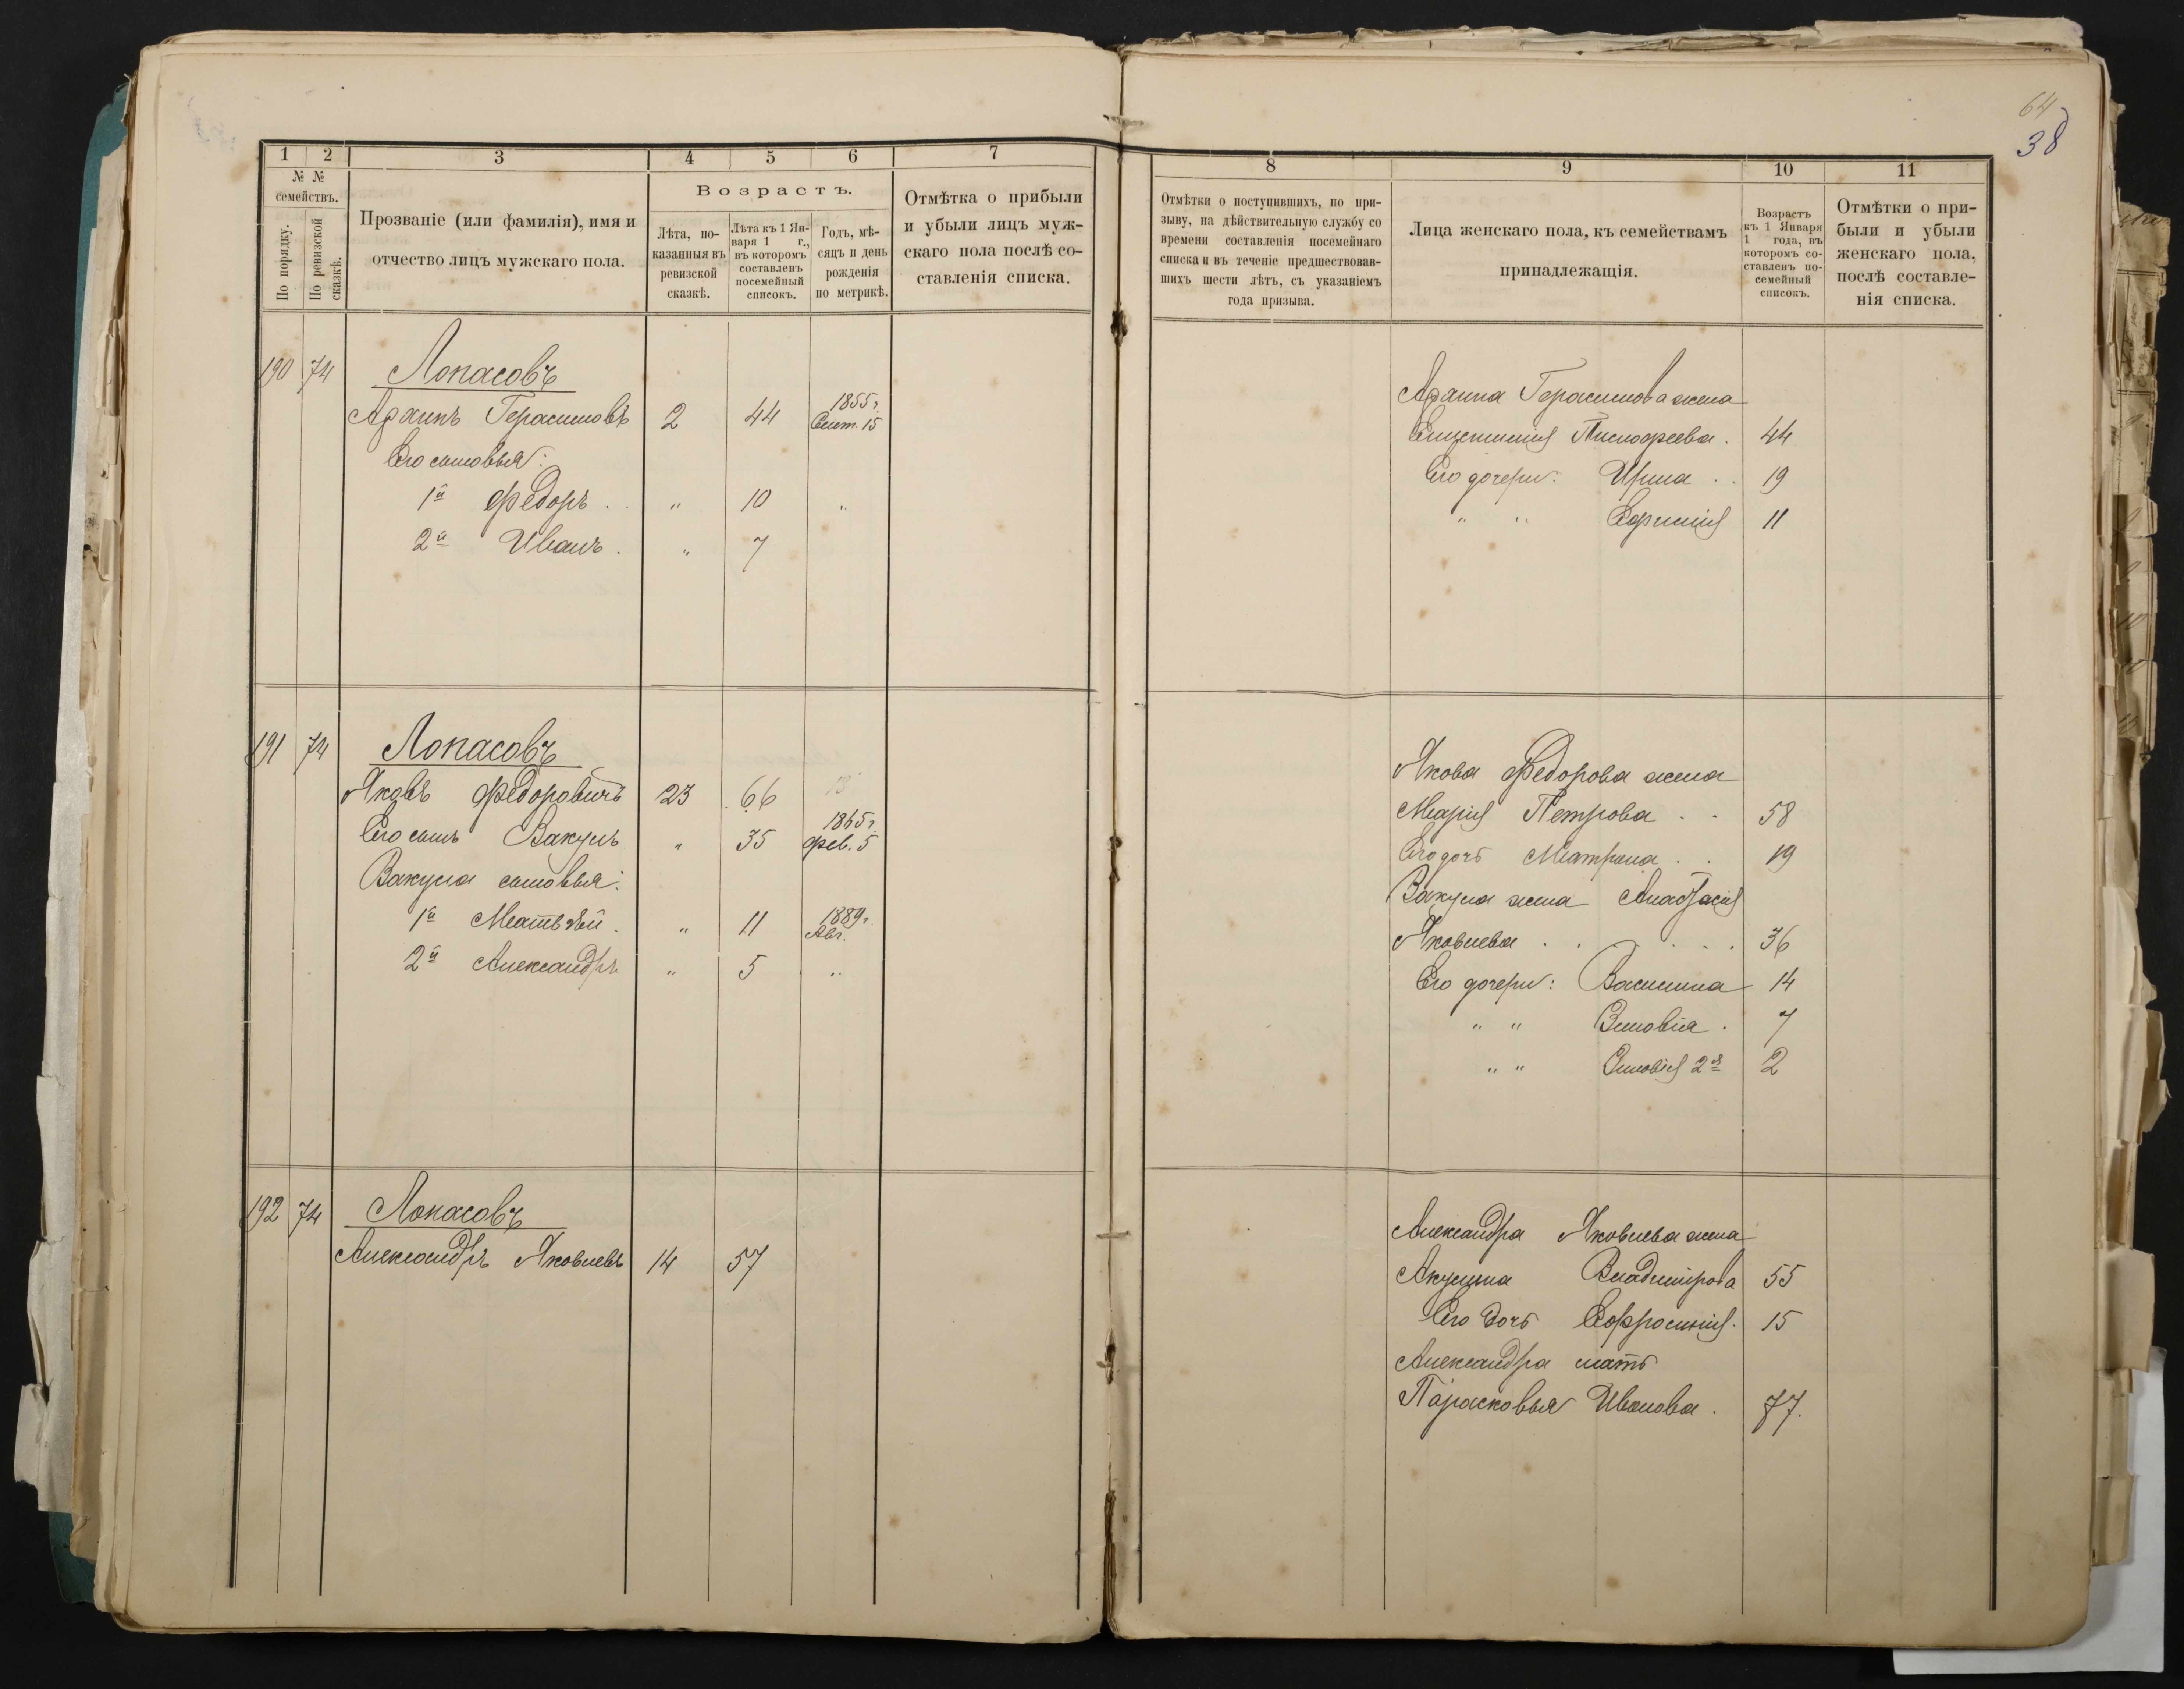 64
38
1
2
3
4
5
6
7
№ №
семействъ.
По порядку.
По ревизской сказкѣ.
Прозваніе (или фамилія), имя и
отчество лицъ мужскаго пола.
Возрастъ.
Лѣта, по-
казанныя въ
ревизской
сказкѣ.
Лѣта къ 1 Ян-
варя 1 г.,
въ которомъ
составленъ
посемейный
списокъ.
Годъ, мѣ-
сяцъ и день
рожденія
по метрикѣ.
Отмѣтка о прибыли
и убыли лицъ муж-
скаго пола послѣ со-
ставленія списка.
190 74 Лопасовъ
Архипъ Герасимовъ 2 44 1855 г. Сент. 15
Его сыновья:
1й Федоръ . . " 10 "
2й Иванъ . " 7
191 74 Лопасовъ
Яковъ Федоровичъ 23 66
Его сынъ Вакулъ " 35 1865 г. фев. 5
Вакула сыновья:
1й Матвѣй . " 11 1889 г. Авг.
2й Александръ " 5 "
192 74 Лопасовъ
Александръ Яковлевъ 14 57
8
9
10
11
Отмѣтки о поступившихъ, по при-
зыву, на дѣйствительную службу со
времени составленія посемейнаго
списка и въ теченіе предшествовав-
шихъ шести лѣтъ, съ указаніемъ
года призыва.
Лица женскаго пола, къ семействамъ
принадлежащія.
Возрастъ
къ 1 Января
1 года, въ
которомъ со-
ставленъ по-
семейный
списокъ.
Отмѣтки о при-
были и убыли
женскаго пола,
послѣ составле-
нія списка.
Архипа Герасимова жена
Тимофеева . 44
Его дочери: Ирина . . 19
" " 11
Якова Федорова жена
Марія Петрова . . 58
Его дочь Матрена . . 19
Вакула жена Анастасія
Яковлева . . . . . 36
Его дочери: Василина 14
" " Зиновія . 7
" " Зиновія 2я 2
Александра Яковлева жена
Акулина Владимірова 55
Его дочь Ефросинія . 15
Александра мать
Парасковья Иванова . 77.